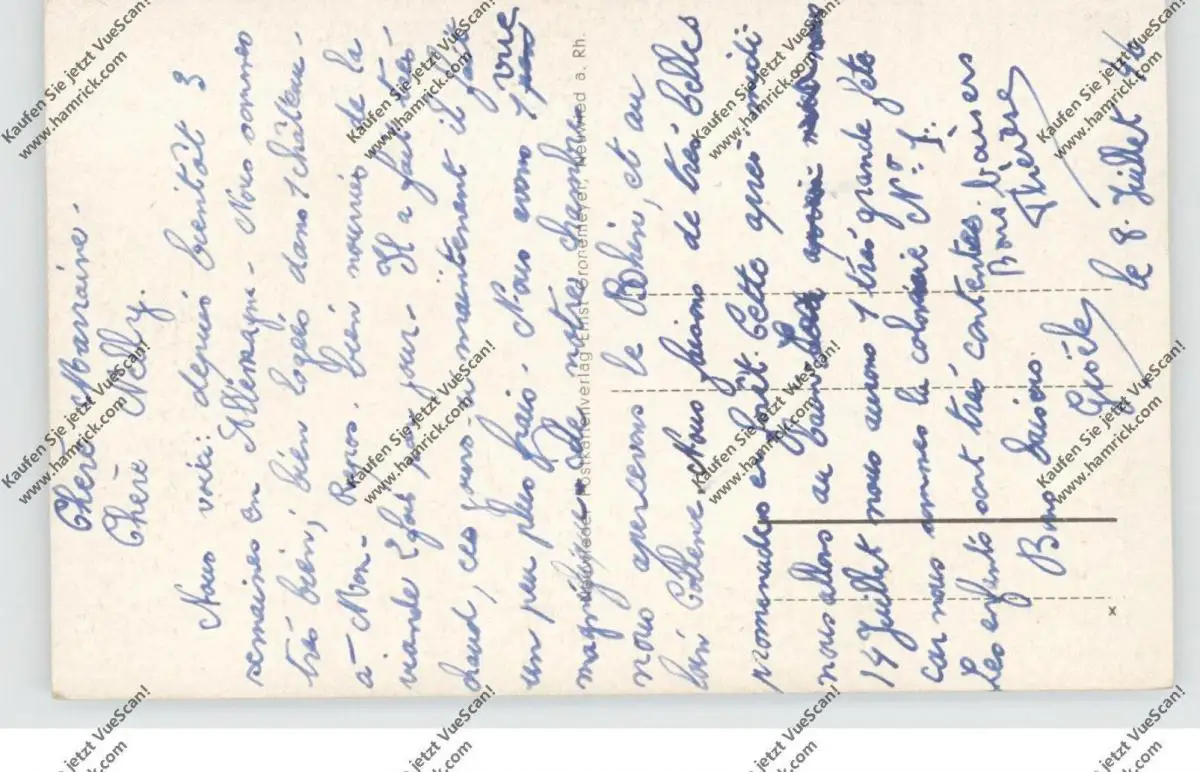 Chère Marraine.
Chère Nelly.
Nous voici depuis bientôt 3
semaines en Allemagne - Nous sommes
très bien, bien logés dans 1 château -
à - Mon - Repos. bien nourris de la
viande 2 fois par jour - Il a fait très
chaud, ces jours - ci maintenant il fait
un peu plus frais. Nous avons 1 vue
magnifique de notre chambre
nous apercevons le Rhin, et au
loin Coblence. Nous faisons de très belles
promenades en forêt. Cette après midi
nous allons au
14 Juillet nous aurons 1 très grande fête
car nous sommes la colonie Nº 1.
Les enfants sont très contentes. Bons baisers
Bons baisers.
Gisèle
le 8 Juillet
Neuwieder Postkartenverlag Ernst Gronemeyer, Neuwied a. Rh.
x
Kaufen Sie jetzt VueScan!
www.hamrick.com